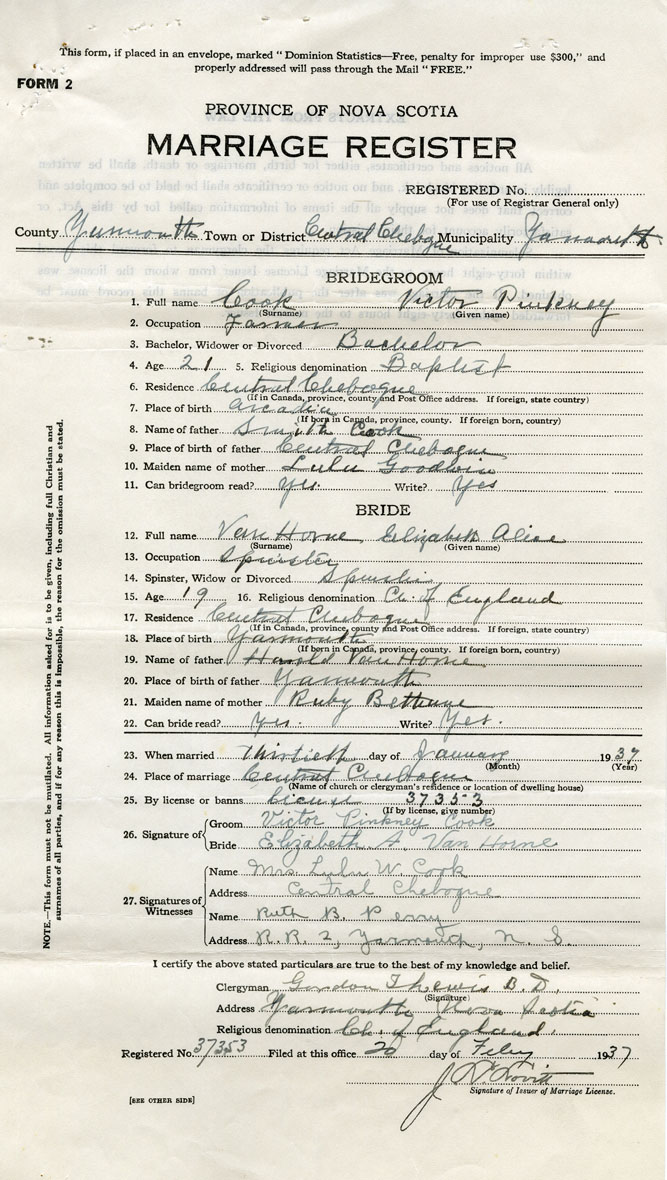 This form, if placed in an envelope, marked "Dominion Statistics—Free, penalty for improper use $300," and
properly addressed will pass through the Mail "FREE."
FORM 2
PROVINCE OF NOVA SCOTIA
MARRIAGE REGISTER
REGISTERED No.
(For use of Registrar General only)
County Yarmouth Town or District Central Chebogue Municipality Yarmouth
BRIDEGROOM
1. Full name Cook Victor Pinkney
(Surname) (Given name)
2. Occupation Farmer
3. Bachelor, Widower or Divorced Bachelor
4. Age 21 5. Religious denomination Baptist
6. Residence Central Chebogue
(If in Canada, province, county and Post Office address. If foreign, state country)
7. Place of birth Arcadia
(If born in Canada, province, county. If foreign born, country)
8. Name of father Smith Cook
9. Place of birth of father Central Chebogue
10. Maiden name of mother Lulu Goodwin
11. Can bridegroom read? Yes. Write? Yes
BRIDE
12. Full name Van Horne Elizabeth Alice
(Surname) (Given name)
13. Occupation Spinster
14. Spinster, Widow or Divorced Spinster
15. Age 19 16. Religious denomination Ch. of England
17. Residence Central Chebogue
(If in Canada, province, county and Post Office address. If foreign, state country)
18. Place of birth Yarmouth
(If born in Canada, province, county. If foreign born, country)
19. Name of father Harold Van Horne
20. Place of birth of father Yarmouth
21. Maiden name of mother Ruby Bethune
22. Can bride read? Yes. Write? Yes.
23. When married Thirtieth day of January 1937
(Month) (Year)
24. Place of marriage Central Chebogue
(Name of church or clergyman's residence or location of dwelling house)
25. By license or banns License 37353
(If by license, give number)
26. Signature of
Groom Victor Pinkney Cook
Bride Elizabeth A Van Horne
27. Signatures of Witnesses
Name Mrs. Lulu W. Cook
Address Central Chebogue
Name Ruth B. Perry
Address R.R. 2, Yarmouth, N. S.
I certify the above stated particulars are true to the best of my knowledge and belief.
Clergyman Gordon Lewis B.D.
(Signature)
Address Yarmouth Nova Scotia
Religious denomination Ch. of England.
Registered No. 37353 Filed at this office 20 day of Feby 1937
Signature of Issuer of Marriage License.
[SEE OTHER SIDE]
NOTE.—This form must not be mutilated. All information asked for is to be given, including full Christian and
surnames of all parties, and if for any reason this is impossible, the reason for the omission must be stated.